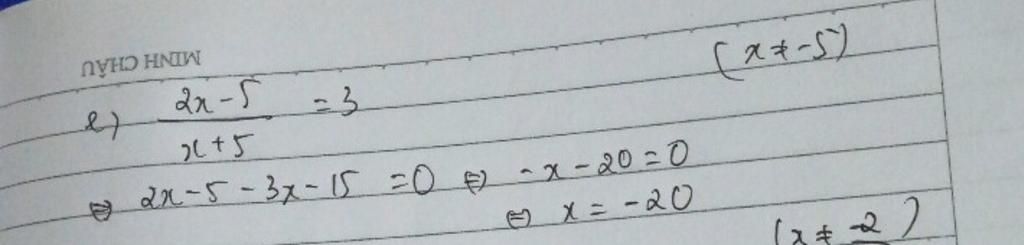 MINH CHÂU
e) (2x-5)/(x+5) = 3 (x ≠ -5)
⇔ 2x-5-3x-15 =0 ⇔ -x-20=0
⇔ x = -20
(x ≠ -2)